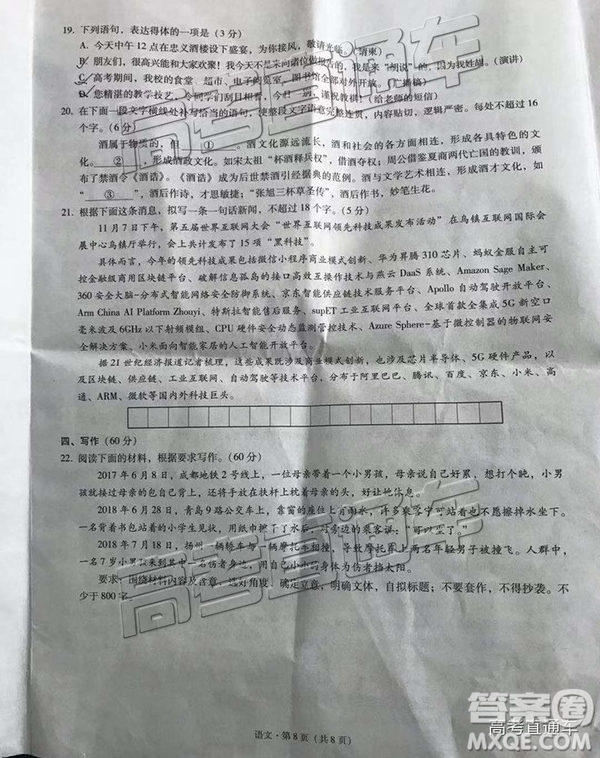 19. 下列语句，表达得体的一项是（3 分）
A. 今天中午 12 点在忠义酒楼设下盛宴，为你接风，敬请光临。（请柬）
B. 朋友们，很高兴能和大家一起
C. 高考期间，我校的食堂、超市、电子阅览室、图书馆全部对外开放。（广播稿）
D. 您精湛的教学技艺，令同学们刮目相看，
20. 在下面一段文字横线处补写恰当的语句，使整段文字语意完整连贯，内容贴切，逻辑严密。每处不超过 16
个字。（6 分）
酒属于物质的，但 ① 。酒文化源远流长，酒和社会的各个方面结合，形成各具特色的文
化。 ② ，形成酒政文化。如宋太祖“杯酒释兵权”，借酒夺权；周公借鉴夏商两代亡国的教训，颁
布了禁酒令《酒诰》。《酒诰》成为后世禁酒引经据典的范例。酒与文学艺术相结合，形成酒艺文化。
“ ③ ”，酒后作诗，才思敏捷；“张旭三杯草圣传”，酒后作书，妙笔生花。
21. 根据下面这条消息，拟写一条一句话新闻，不超过 18 个字。（5 分）
11 月 7 日下午，第五届世界互联网大会“世界互联网领先科技成果发布活动”在乌镇互联网国际会
展中心乌镇厅举行，会上共计发布了 15 项“黑科技”。
具体而言，今年的领先科技成果包括微信小程序商业模式创新、华为昇腾 310 芯片、蚂蚁金服自主可
控金融级商用区块链平台、破解信息孤岛的接口高效互操作技术与燕云 DaaS 系统、Amazon Sage Maker、
360 安全大脑-分布式智能网络安全防御系统、京东智能供应链技术服务平台、Apollo 自动驾驶开放平台、
Arm China AI Platform Zhouyi、特斯拉智能售后服务、supET 工业互联网平台、全球首款全集成 5G 新空口
毫米波及 6GHz 以下射频模组、CPU 硬件安全动态监测管控技术、Azure Sphere-基于微控制器的物联网安
全解决方案、小米面向智能家居的人工智能开放平台。
据 21 世纪经济报道记者梳理，这些成果既涉及商业模式创新，也涉及芯片半导体、5G 硬件产品，以
及区块链、供应链、工业互联网、自动驾驶等技术平台，分布于阿里巴巴、腾讯、百度、京东、小米、高
通、ARM、微软等国内外科技巨头。
四、写作（60 分）
22. 阅读下面的材料，根据要求写作。（60 分）
2017 年 6 月 8 日，成都地铁 2 号线上，一位母亲带着一个小男孩，母亲说自己好累，想打个盹，小男
孩就接过包裹，还将手放在扶杆上枕着母亲的头，好让她休息。
2018 年 6 月 28 日，青岛 9 路公交车上，靠窗的座位上有雨水，许多乘客宁可站着也不愿擦掉水坐下。
一名背着书包站着的小学生见状，用纸巾擦了水后，对旁边的乘客说：“可以坐了”。
2018 年 7 月 18 日，扬州一辆轿车与一辆摩托车相撞，导致摩托车上两名年轻男子被撞飞。人群中，
一名 7 岁小男孩来到其中一名伤者身边，用自己小小的身体为伤者挡太阳。
要求：围绕材料内容及含意，选好角度，确定立意，明确文体，自拟标题；不要套作，不得抄袭。不
少于 800 字。
语文·第 8 页（共 8 页）
高考直通车
高考直通车
答案圈
高考直通车
MXQE.COM